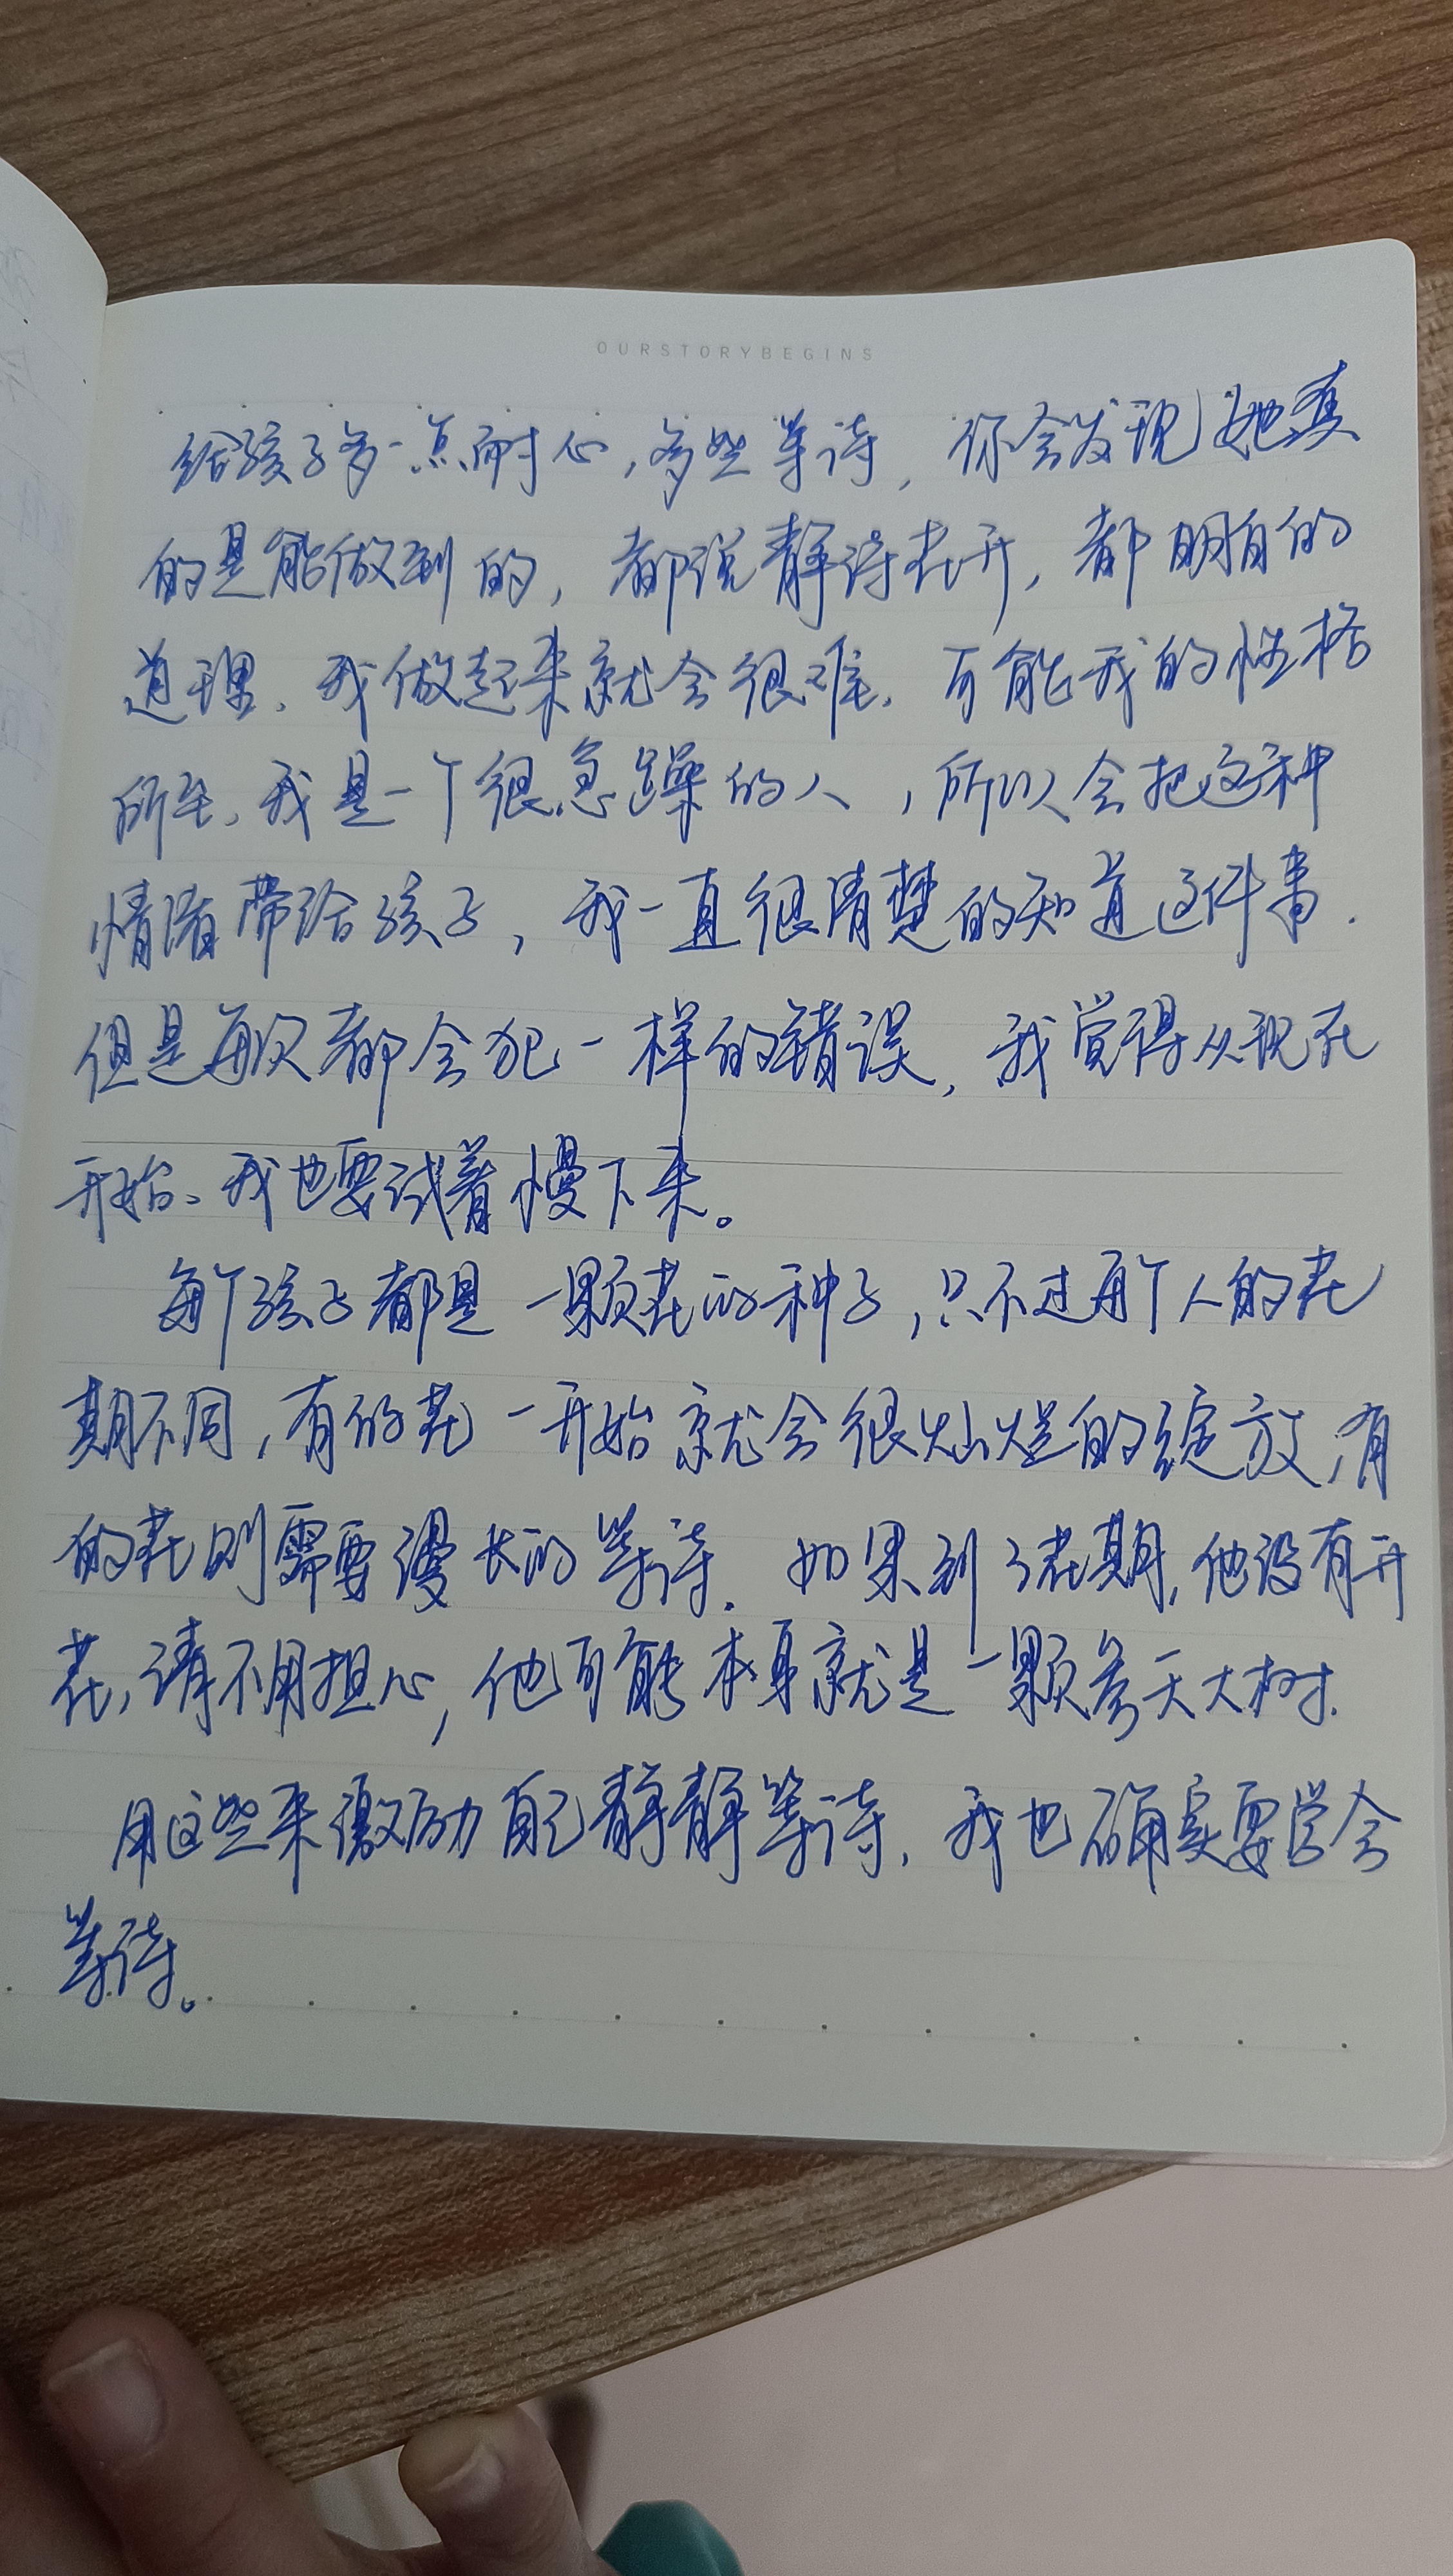 OURSTORYBEGINS
给孩子多一点耐心,多些等待,你会发现她真
的是能做到的,都说静待花开,都明白的
道理,我做起来就会很难,可能我的性格
所至,我是一个很急躁的人,所以会把这种
情绪带给孩子,我一直很清楚的知道这件事.
但是每次都会犯一样的错误,我觉得从现在
开始、我也要试着慢下来。
每个孩子都是一颗花的种子,只不过每个人的花
期不同,有的花一开始就会很灿烂的绽放,有
的花则需要漫长的等待.如果到了花期,他没有开
花,请不用担心,他可能本身就是一颗参天大树.
用这些来激励自己静静等待,我也确实要学会
等待。